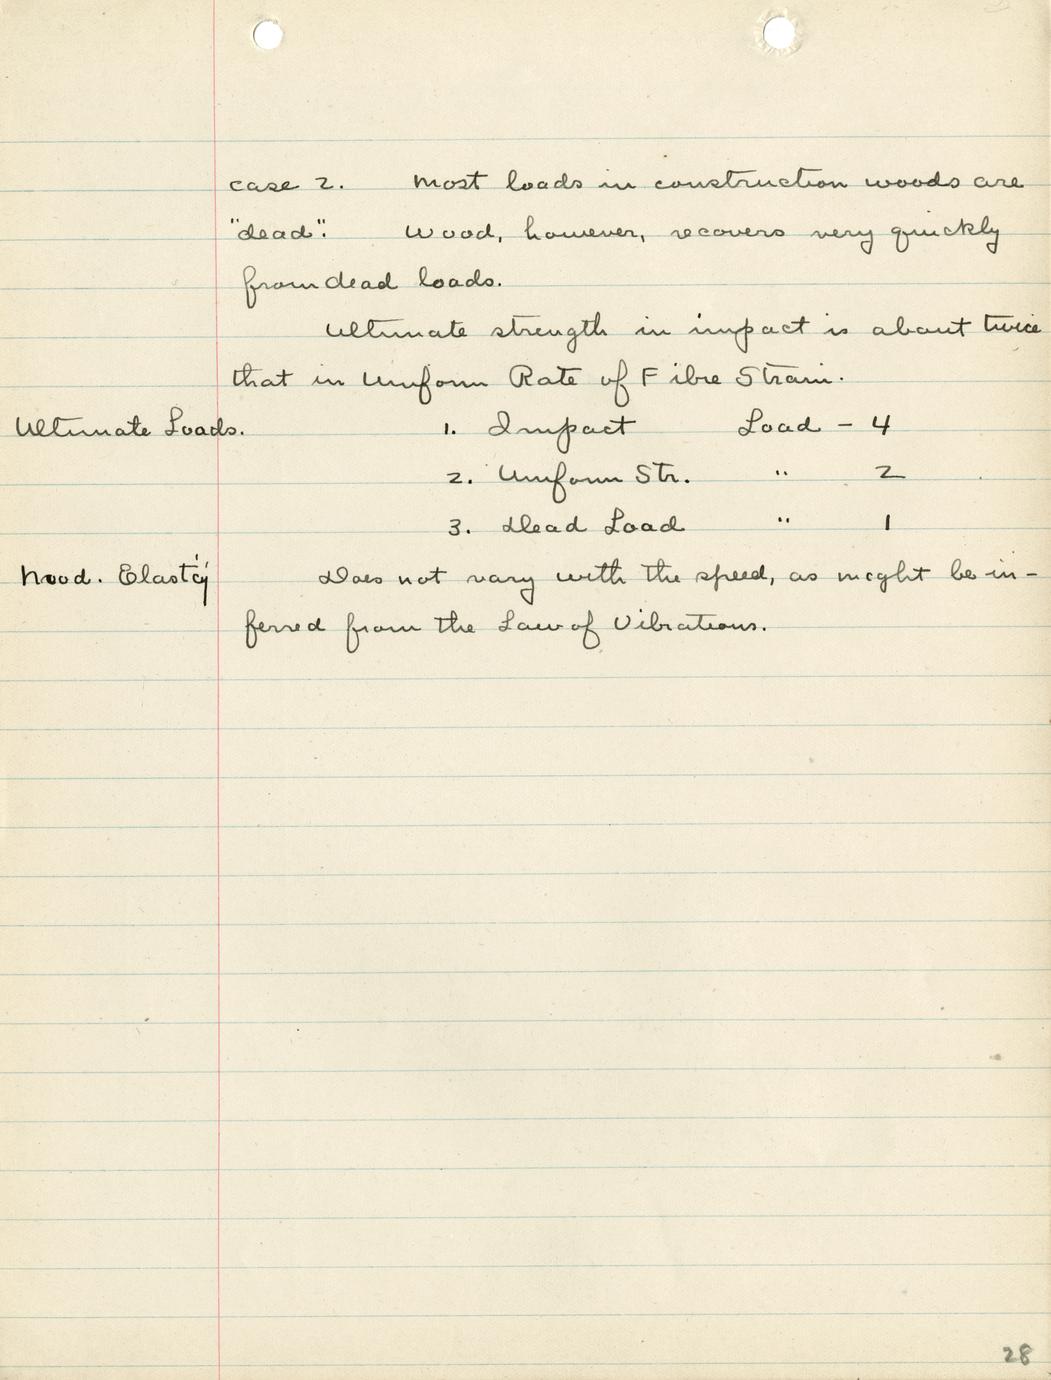 case 2. Most loads in construction woods are
"dead". Wood, however, recovers very quickly
from dead loads.
Ultimate strength in impact is about twice
that in Uniform Rate of Fibre Strain.
Ultimate Loads. 1. Impact Load - 4
2. Uniform Str. " 2
3. Dead Load " 1
Mod. Elast'cy Does not vary with the speed, as might be in-
ferred from the Law of Vibrations.
28